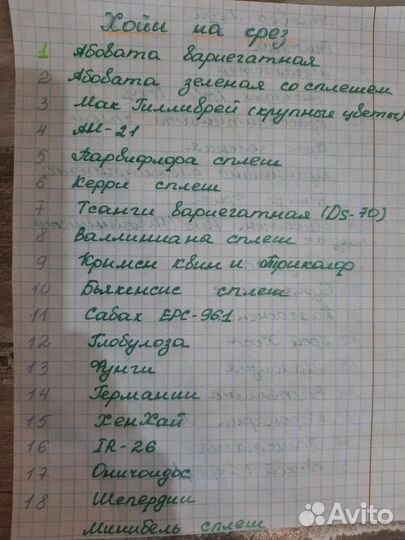 Хойи на срез
1 Абовата вариегатная
2 Абовата зеленая со сплешем
3 Мак Гиллибрей (крупные цветы)
4 АН-21
5 Парвифлора сплеш
6 Керри сплеш
7 Тсанги вариегатная (DS-70)
8 Валлиниана сплеш
9 Кримсн квин и Триколор
10 Бьякенсис сплеш
11 Сабах ЕРС-961
12 Глобулоза
13 Фунги
14 Германии
15 ХенХай
16 IR-26
17 Оничоидос
18 Шепердии
Минибель сплеш
Avito